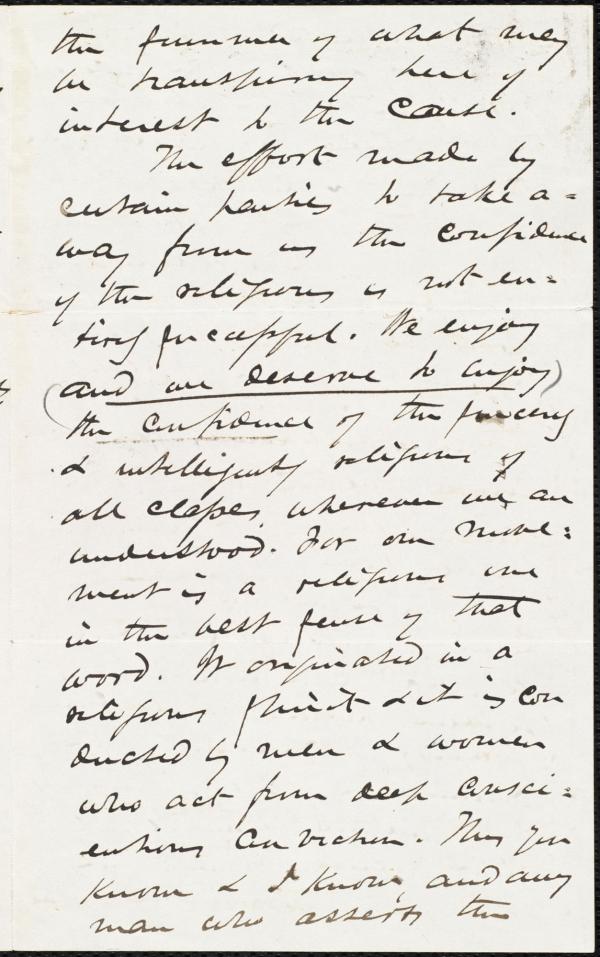 the summer of what may
be transpiring here of
interest to the Cause.
The effort made by
certain parties to take a=
way from us the confidence
of the religious is not en=
tirely successful. We enjoy
(and we deserve to enjoy)
the confidence of the sincerely
& intelligently religious of
all classes, wherever we are
understood. For our move=
ment is a religious one
in the best sense of that
word. It originated in a
religious spirit & it is con
ducted by men & women
who act from deep consci=
entious conviction. This you
know & I know, and any
man who asserts the